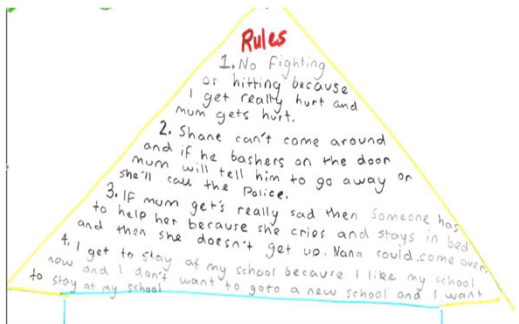 Rules
1. No Fighting
or hitting because
I get really hurt and
mum gets hurt.
2. Shane can't come around
and if he bashers on the door
mum will tell him to go away or
she'll call the Police.
3. If mum get's really sad then someone has
to help her because she cries and stays in bed
and then she doesn't get up. Nana could come over.
4. I get to stay at my school because I like my school
now and I don't want to goto a new school and I want
to stay at my school